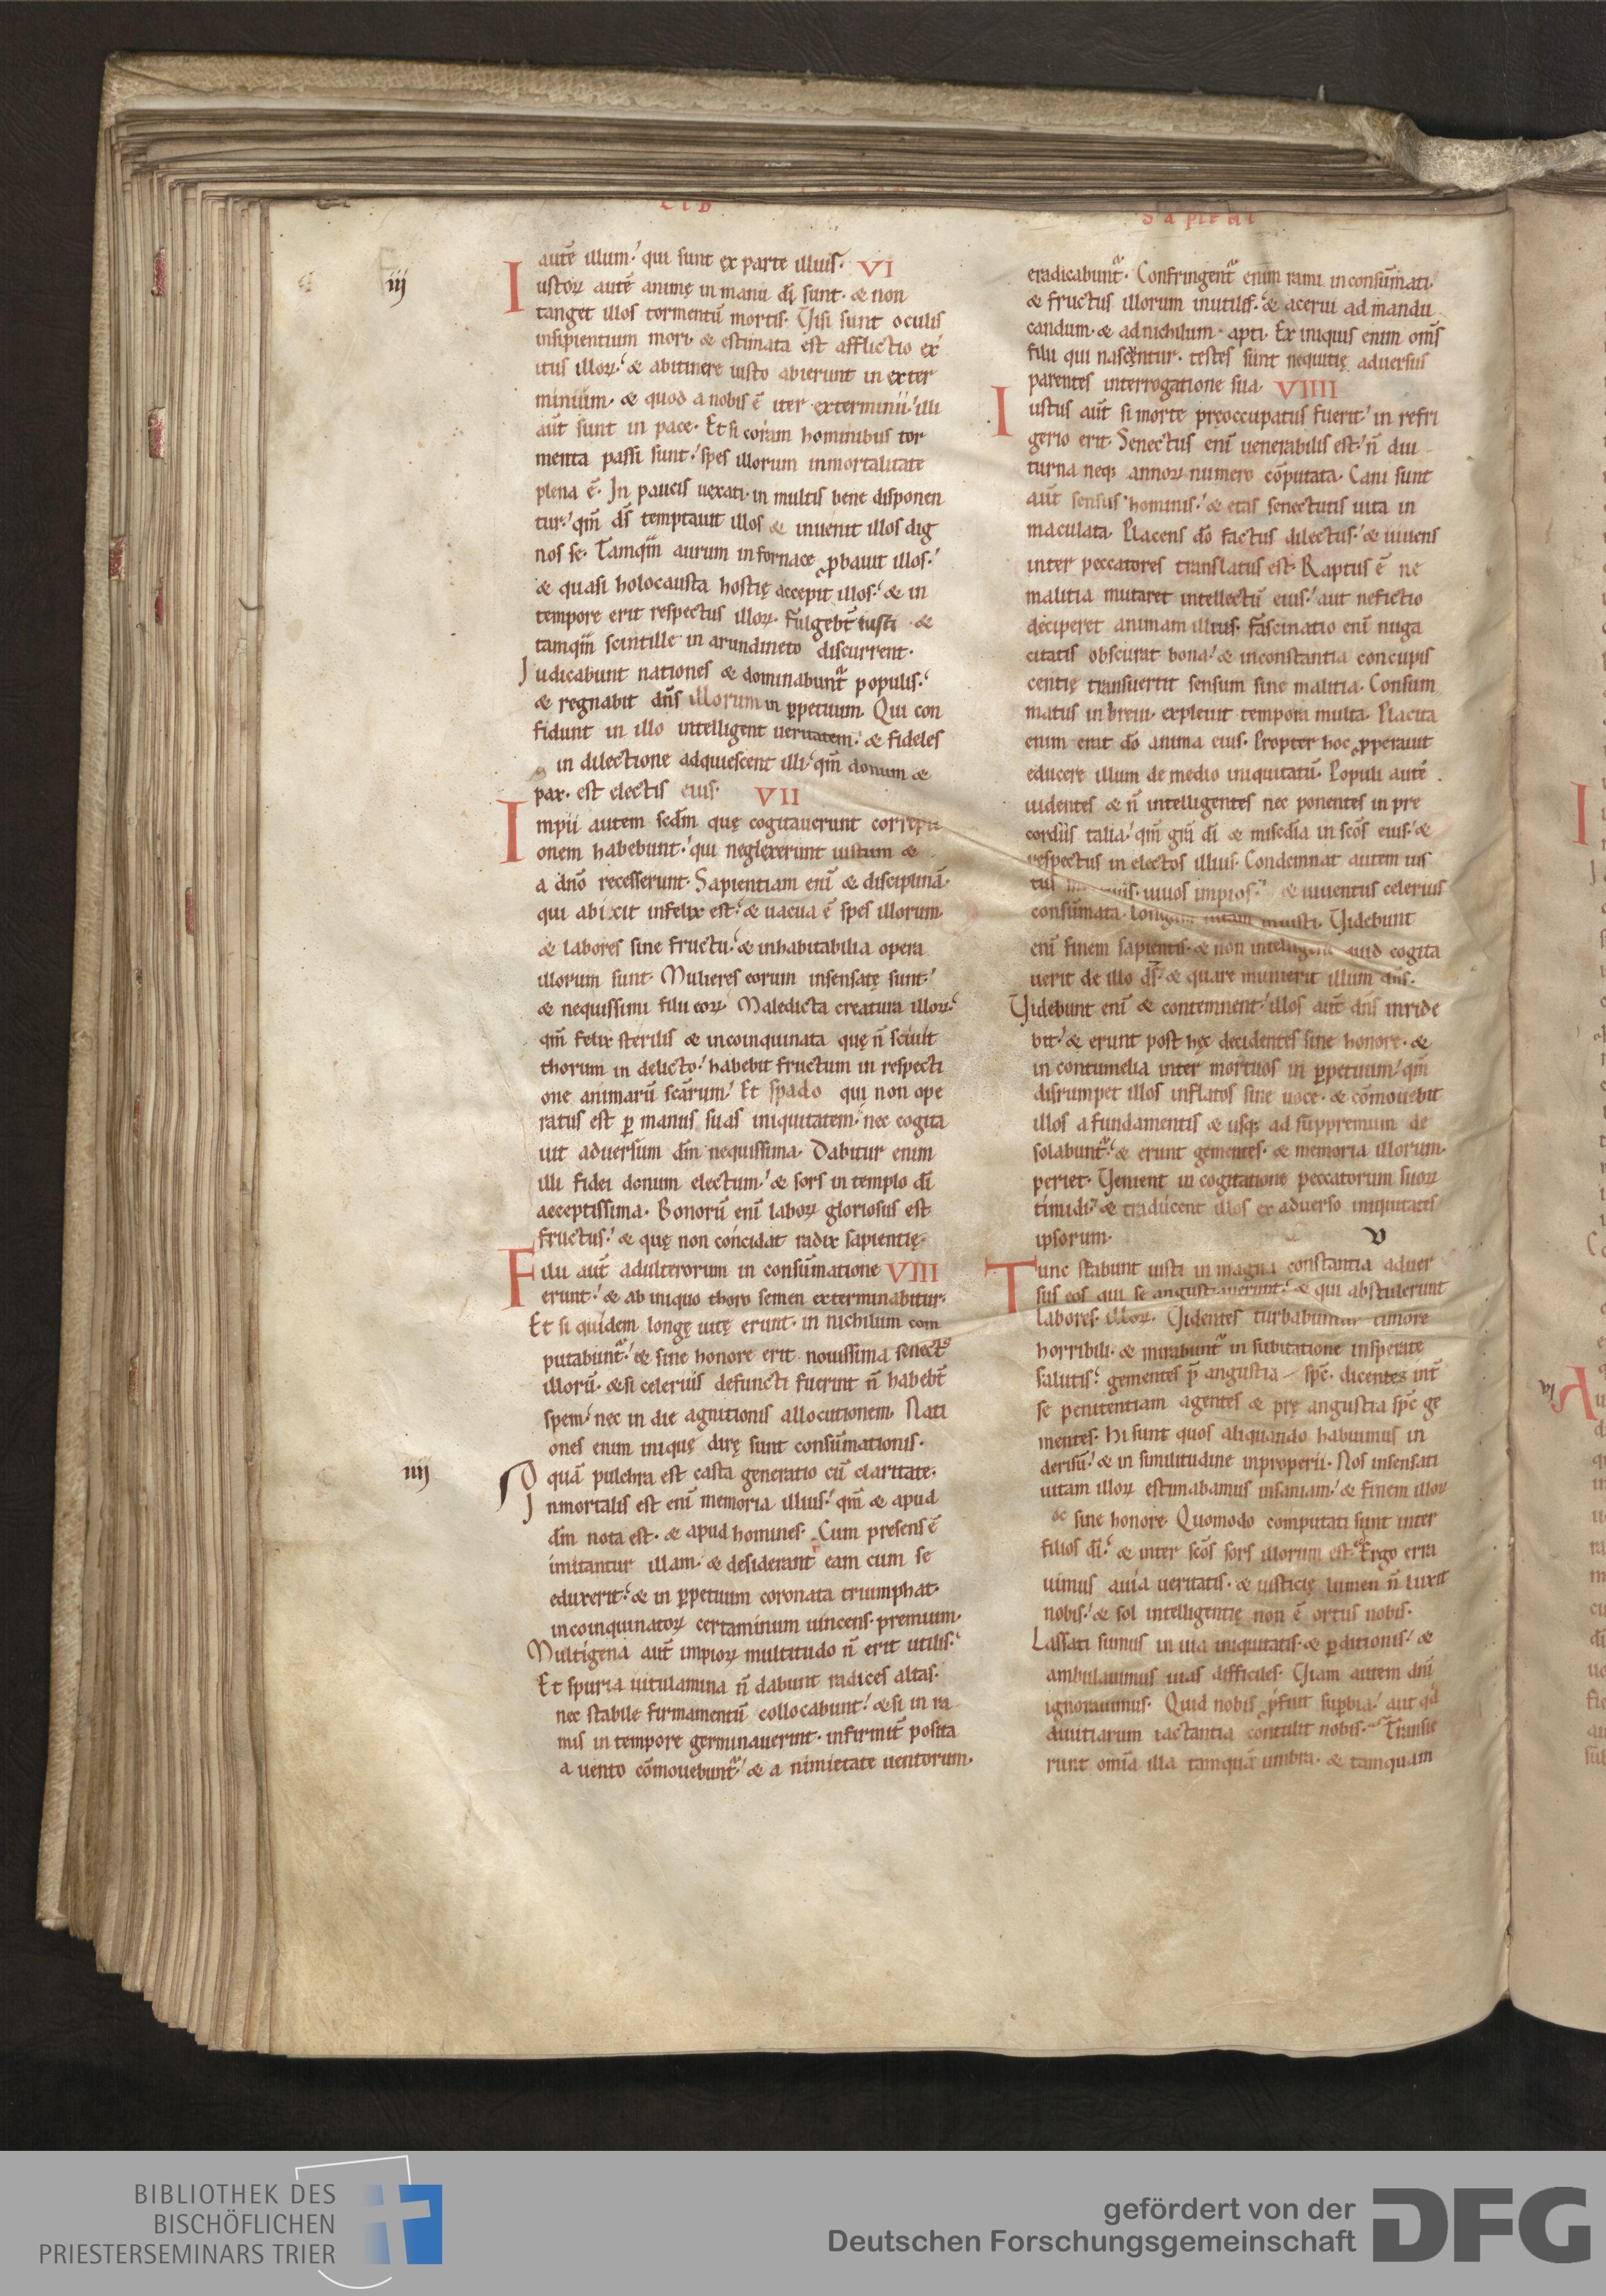 LIB
iij
autē illum.' qui sunt ex parte illius. VI
Iustoꝝ autē animę in manu dī sunt. & non
tanget illos tormentū mortis. Uisi sunt oculis
insipientium mori. & estimata est afflictio ex
itus illoꝝ.' & abitinere iusto abierunt in exter
minium. & quod a nobis ē iter exterminii.' illi
aūt sunt in pace. Et si coram hominibus tor
menta passi sunt.' spes illorum inmortalitate
plena ē. In paucis uexati. in multis bene disponen
tur.' qm̄ ds̄ temptauit illos & inuenit illos dig
nos se. Tamqm̄ aurum in fornace ꝓbauit illos.'
& quasi holocausta hostię accepit illos.' & in
tempore erit respectus illoꝝ. Fulgebt̄ iusti &
tamqm̄ scintille in arundineto discurrent.
Iudicabunt nationes & dominabunt᷑ populis.'
& regnabit dn̄s illorum in ꝑpetuum. Qui con
fidunt in illo intelligent ueritatem. & fideles
in dilectione adquiescent illi.' qm̄ donum &
pax. est electis eius. VII
Impii autem scd̄m quę cogitauerunt correpti
onem habebunt.' qui neglexerunt iustum &
a dn̄o recesserunt. Sapientiam enī & disciplinā.
qui abicit infelix est.' & uacua ē spes illorum.
& labores sine fructu.' & inhabitabilia opera
illorum sunt. Mulieres eorum insensatę sunt.'
& nequissimi filii eoꝝ. Maledicta creatura illoꝝ.'
qm̄ felix sterilis & incoinquinata quę n̄ sciuit
thorum in delicto.' habebit fructum in respecti
one animarū scārum.' Et spado qui non ope
ratus est ꝑ manus suas iniquitatem. nec cogita
uit aduersum dm̄ nequissima. Dabitur enim
illi fidei donum electum.' & sors in templo dī
acceptissima. Bonorū enī laboꝝ gloriosus est
fructus.' & quę non concidat radix sapientię.
Filii aūt adulterorum in consūmatione VIII
erunt.' & ab iniquo thoro semen exterminabitur.
Et si quidem longę uitę erunt. in nichilum com
putabunt᷑.' & sine honore erit nouissima senectꝰ
illorū. & si celerius defuncti fuerint n̄ habebt̄
spem.' nec in die agnitionis allocutionem. Nati
ones enim iniquę dirę sunt consūmationis.
iiij
O quā pulchra est casta generatio cū claritate.
Inmortalis est enī memoria illius.' qm̄ & apud
dm̄ nota est. & apud homines. Cum presens ē
imitantur illam. & desiderant eam cum se
eduxerit.' & in ꝑpetuum coronata triumphat.
incoinquinatoꝝ certaminum uincens. premium.
Multigena aūt impioꝝ multitudo n̄ erit utilis.'
Et spuria uitulamina n̄ dabunt radices altas.
nec stabile firmamentū collocabunt.' & si in ra
mis in tempore germinauerint. infirmit̄ posita
a uento cōmouebunt᷑.' & a nimietate uentorum.
Sapienti
eradicabunt᷑. Confringent᷑ enim rami inconsūmati.
& fructus illorum inutiles.' & acerui ad mandu
candum. & ad nichilum apti. Ex iniquis enim omīs
filii qui nascentur. testes sunt nequitię aduersus
parentes interrogatione sua. VIIII
Iustus aūt si morte pręoccupatus fuerit.' in refri
gerio erit. Senectus enī uenerabilis est.' n̄ diu
turna neq; annoꝝ numero cōputata. Cani sunt
aūt sensus hominis.' & etas senectutis uita in
maculata. Placens dō factus dilectus.' & uiuens
inter peccatores translatus est. Raptus ē ne
malitia mutaret intellectū eius.' aut ne fictio
deciperet animam illius. Fascinatio enī nuga
citatis obscurat bona.' & inconstantia concupis
centię transuertit sensum sine malitia. Consum
matus in breui. expleuit tempora multa. Placita
enim erat dō anima eius. Propter hoc ꝓperauit
educere illum de medio iniquitatū. Populi autē
uidentes & n̄ intelligentes nec ponentes in pre
cordiis talia.' qm̄ grā dī & misedīa in scōs eius.' &
respectus in electos illius. Condemnat autem ius
tus uiuos impios.' & iuuentus celerius
consūmata. longam uitam iniusti. Uidebunt
enī finem sapientis. & non intelligent quid cogita
uerit de illo ds̄.' & quare munierit illum dn̄s.
Uidebunt enī & contemnent.' illos aūt dn̄s inride
bit.' & erunt post hęc decidentes sine honore. &
in contumelia inter mortuos in ꝑpetuum.' qm̄
disrumpet illos inflatos sine uoce. & cōmouebit
illos a fundamentis & usq; ad suppremum de
solabunt᷑.' & erunt gementes. & memoria illorum.
periet. Uenient in cogitatione peccatorum suoꝝ
timidi.' & traducent illos ex aduerso iniquitates
ipsorum.
v
Tunc stabunt iusti in magna constantia aduer
sus eos qui se angustiauerunt.' & qui abstulerunt
labores illoꝝ. Uidentes turbabuntur timore
horribili. & mirabunt᷑ in subitatione insperate
salutis.' gementes p̄ angustia spc̄. dicentes int̄
se penitentiam agentes & prę angustia spc̄ ge
mentes. Hi sunt quos aliquando habuimus in
derisū.' & in similitudine inproperii. Nos insensati
uitam illoꝝ estimabamus insaniam.' & finem illoꝝ
& sine honore. Quomodo computati sunt inter
filios dī.' & inter scōs sors illorum est. Ergo erra
uimus a uia ueritatis. & iusticię lumen n̄ luxit
nobis.' & sol intelligentię non ē ortus nobis.
Lassati sumus in uia iniquitatis. & ꝑditionis.' &
ambulauimus uias difficiles. Uiam autem dnī
ignorauimus. Quid nobis ꝓfuit supꝑbia.' aut qd̄
diuitiarum iactantia contulit nobis. Transie
runt omīa illa tamquā umbra. & tamquam
BIBLIOTHEK DES
BISCHÖFLICHEN
PRIESTERSEMINARS TRIER
gefördert von der
Deutschen Forschungsgemeinschaft
DFG